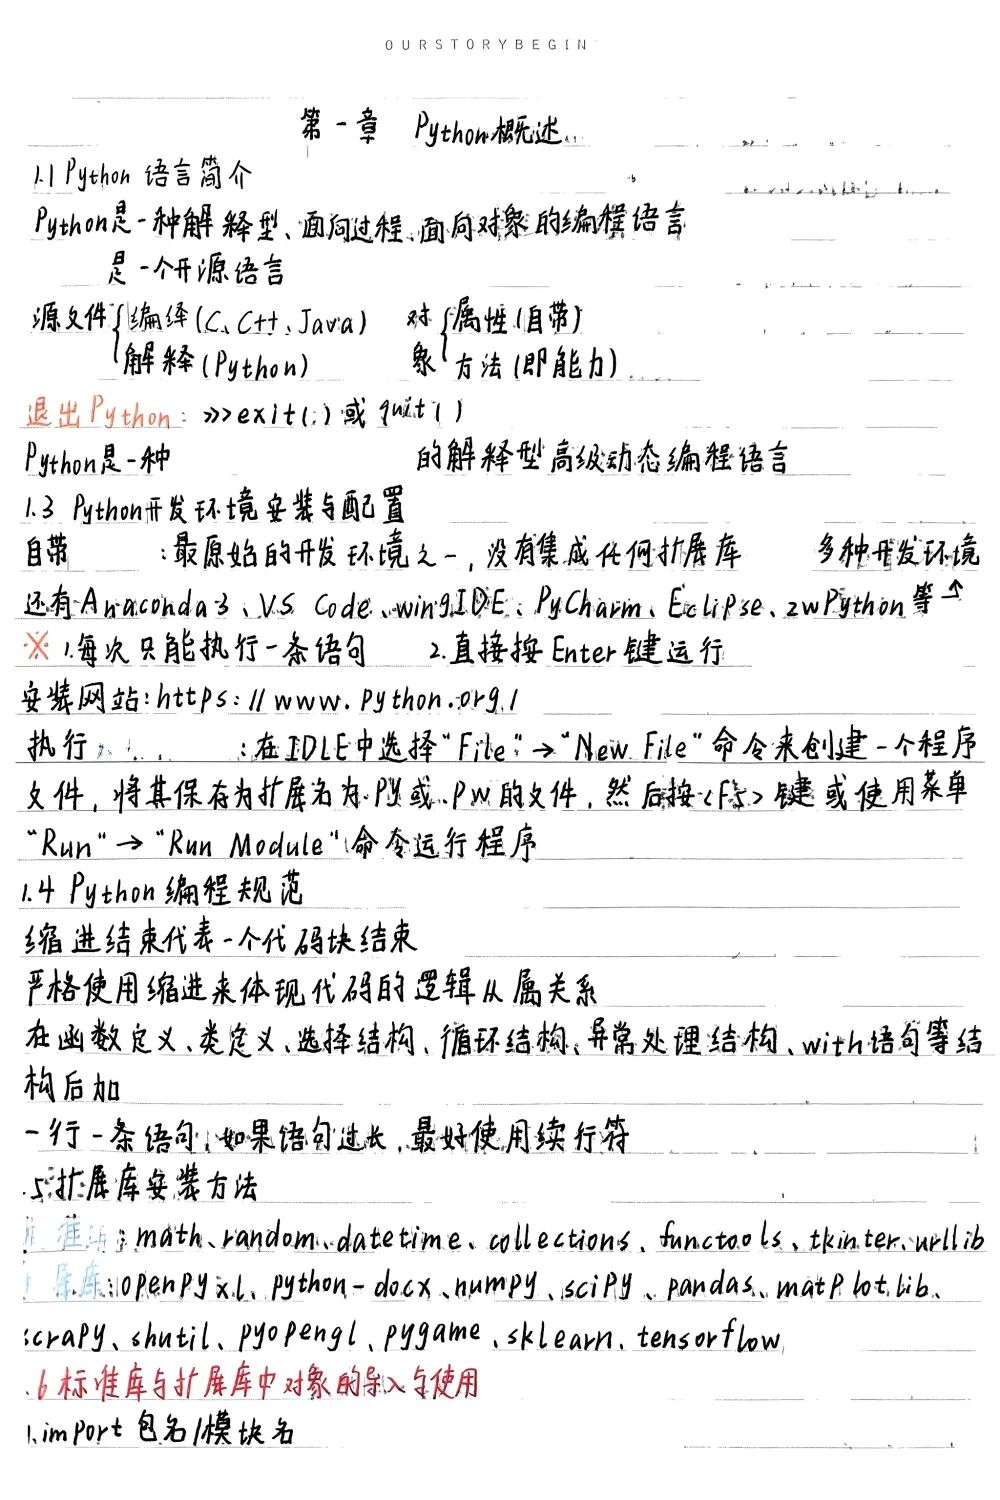 OURSTORYBEGIN
第一章 Python概述
1.1 Python 语言简介
Python是一种解释型、面向过程、面向对象的编程语言
是一个开源语言
源文件{编绎(C、C++、Java) 对{属性(自带)
解释(Python) 象 方法(即能力)
退出Python: >>>exit()或quit()
Python是一种 的解释型高级动态编程语言
1.3 Python开发环境安装与配置
自带 :最原始的开发环境之一,没有集成任何扩展库 多种开发环境
还有Anaconda3、VS Code、wingIDE、PyCharm、Eclipse、zwPython等↑
※ 1.每次只能执行一条语句 2.直接按Enter键运行
安装网站:https://www.python.org/
执行 :在IDLE中选择"File"→"New File"命令来创建一个程序
文件,将其保存为扩展名为.py或.pw的文件,然后按<F5>键或使用菜单
"Run"→"Run Module"命令运行程序
1.4 Python编程规范
缩进结束代表一个代码块结束
严格使用缩进来体现代码的逻辑从属关系
在函数定义、类定义、选择结构、循环结构、异常处理结构、with语句等结
构后加
一行一条语句,如果语句过长,最好使用续行符
.5扩展库安装方法
准 :math、random、datetime、collections、functools、tkinter、urllib
展库:openpyxl、python-docx、numpy、scipy、pandas、matplotlib、
scrapy、shutil、pyopengl、pygame、sklearn、tensorflow
.6标准库与扩展库中对象的导入与使用
1.import 包名/模块名